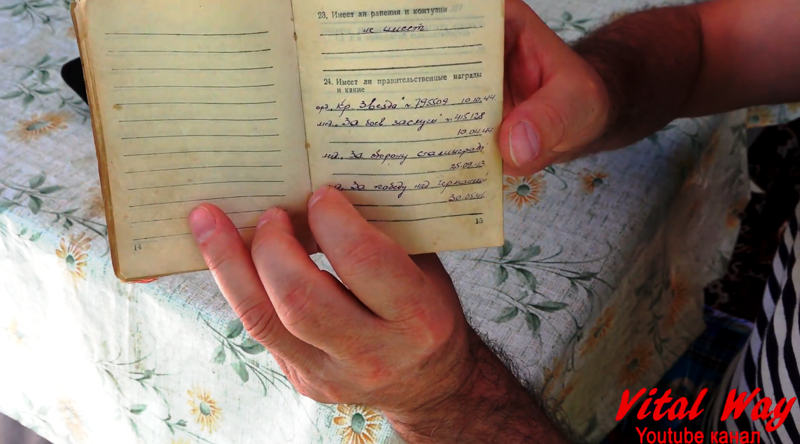 23. Имеет ли ранения и контузии
не имеет
24. Имеет ли правительственные награды
и какие
орд. "Кр. Звезда" № 795509 10.10.44
"За боев заслуги" № 415128
10.04.44
"За оборону Сталинграда"
25.09.43
"За победу над Германией"
30.05.46
14
15
Vital Way
Youtube канал